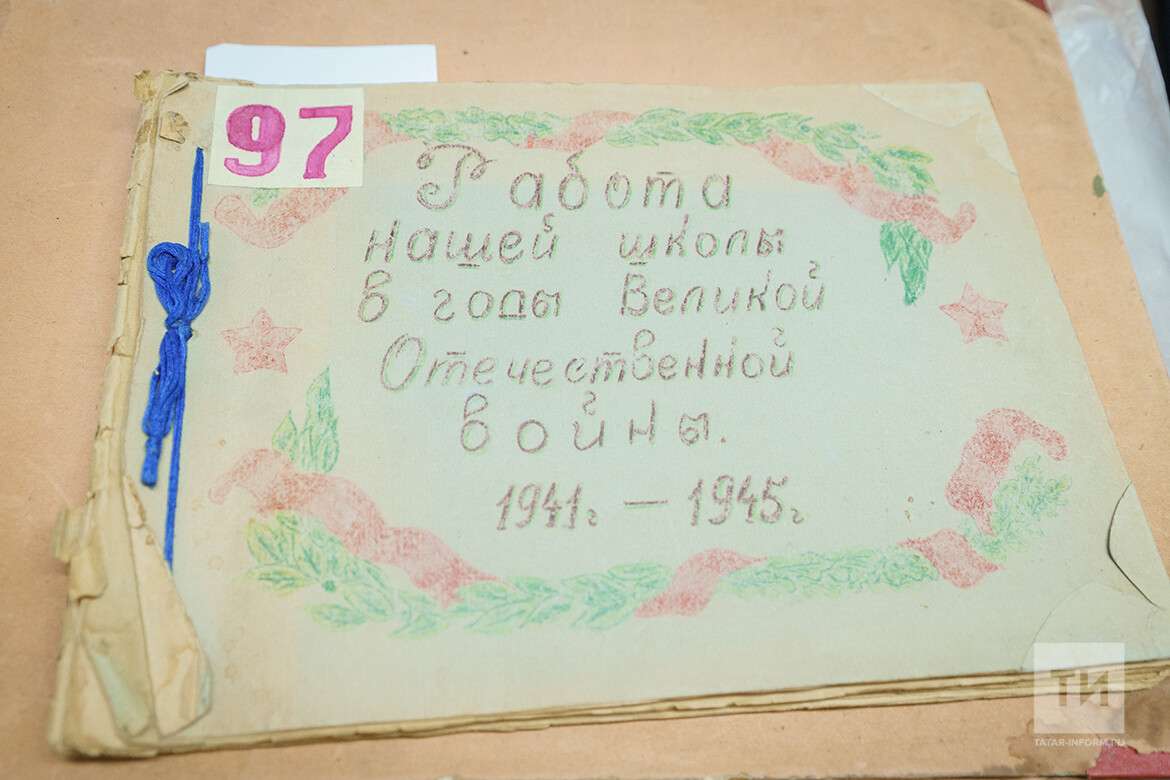 97
Работа
нашей школы
в годы Великой
Отечественной
войны.
1941г. — 1945г.
ТИ
TATAR-INFORM.RU